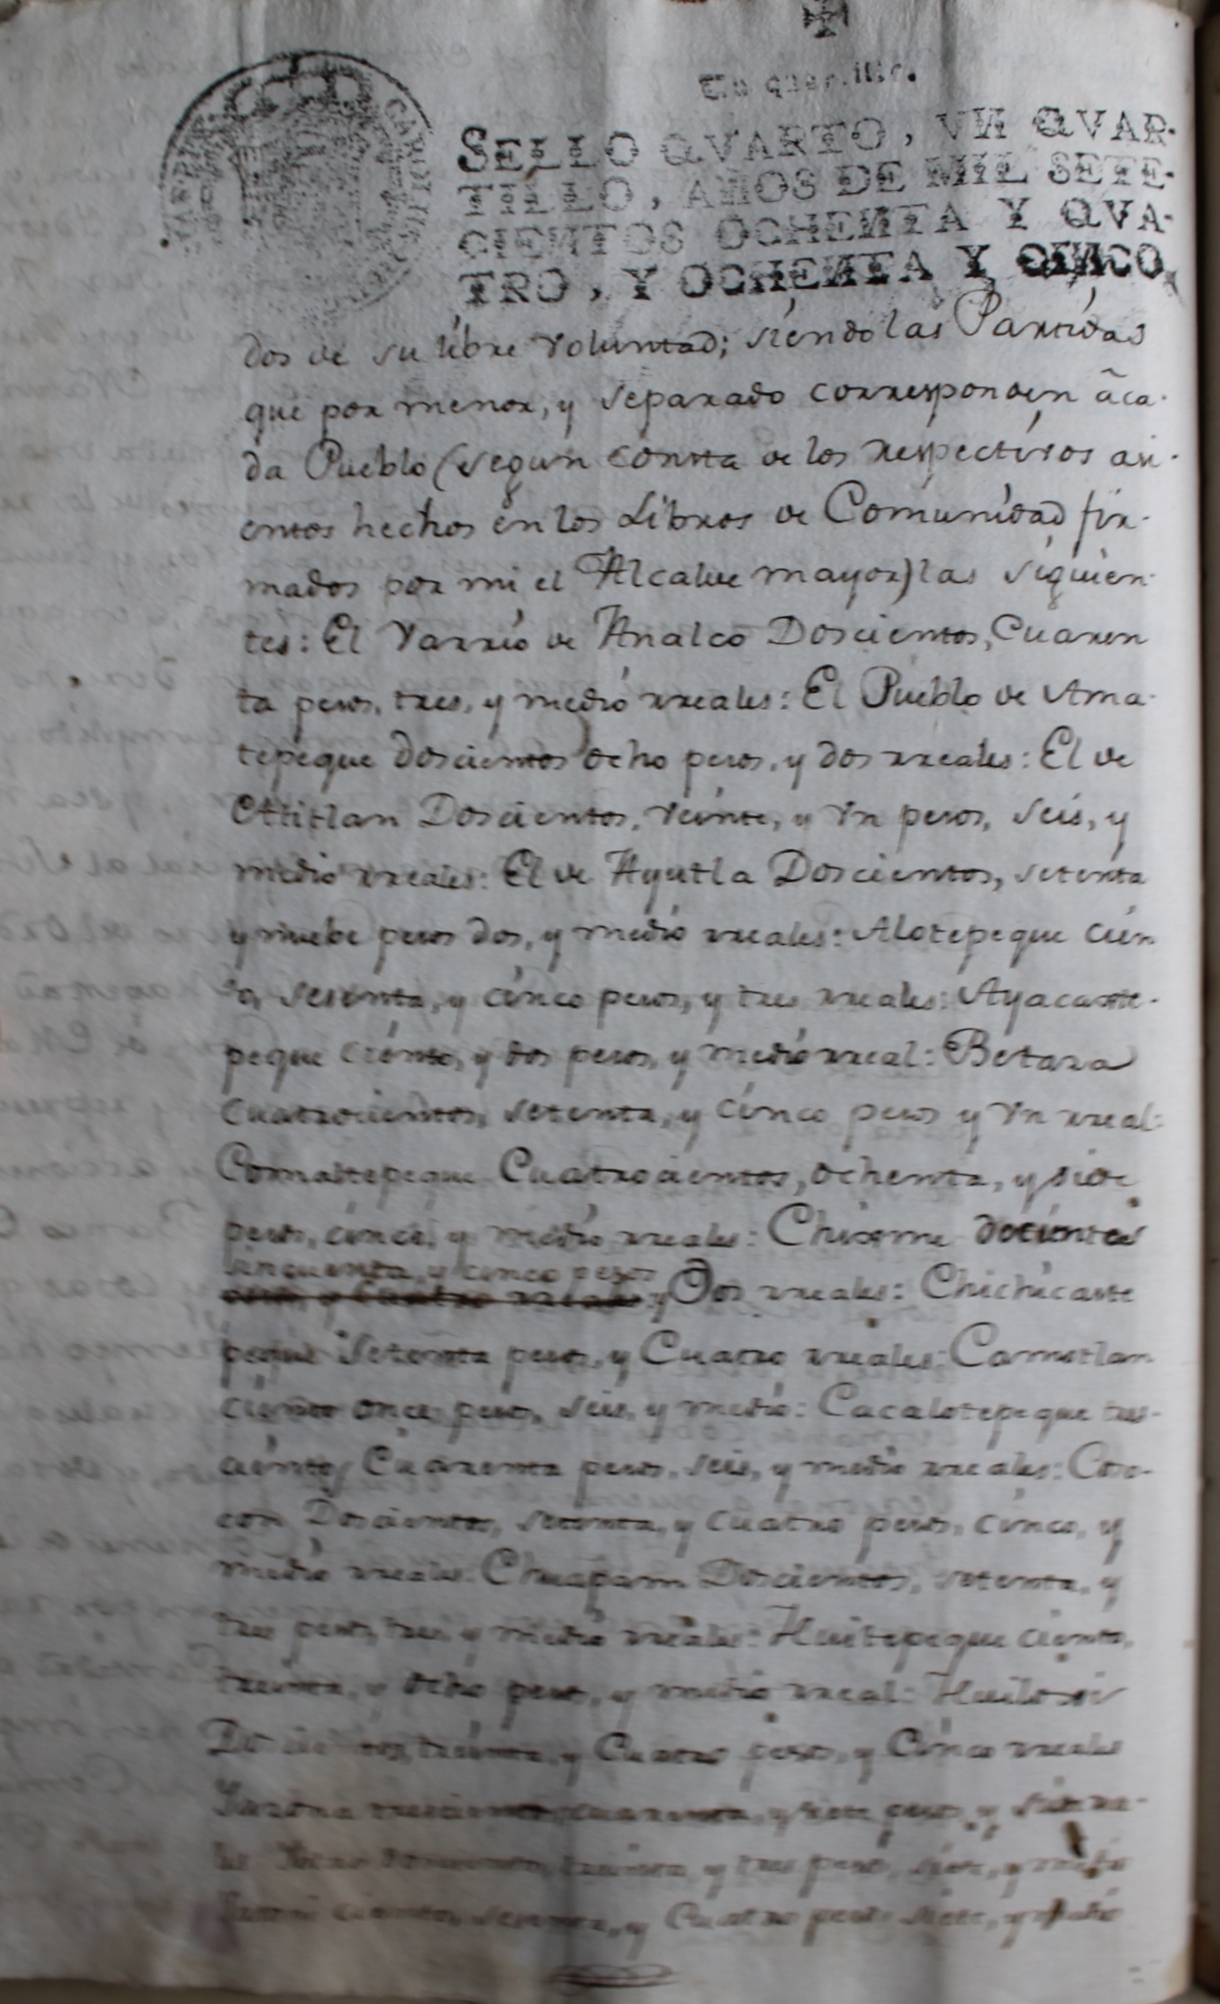 Un quartillo.
SELLO QVARTO, VN QVAR-
TILLO, AÑOS DE MIL SETE-
CIENTOS OCHENTA Y QVA-
TRO, Y OCHENTA Y CINCO
dos de su libre voluntad; siendo las Partidas
que por menor, y separado corresponden â ca-
da Pueblo (segun consta de los respectivos asi-
entos hechos en los Libros de Comunidad fir-
mados por mi el Alcalde mayor) las siguien-
tes: El Varrio de Analco Doscientos, Cuaren
ta pesos, tres, y medio rreales: El Pueblo de Ama-
tepeque doscientos ocho pesos, y dos rreales: El de
Atitlan Doscientos, veinte, y Vn pesos, seis, y
medio rreales: El de Ayutla Doscientos, setenta
y nuebe pesos dos, y medio rreales: Alotepeque cien
to, sesenta, y cinco pesos, y tres rreales: Ayacaste-
peque ciento, y dos pesos, y medio rreal: Betaza
Cuatrocientos, setenta, y cinco pesos y Vn rreal:
Comaltepeque Cuatrocientos, ochenta, y siete
pesos, cinco, y medio rreales: Chisme docientos
sincuenta, y cinco pesos
y Dos rreales: Chichicaste
peque setenta pesos, y Cuatro rreales: Camotlan
ciento once pesos, seis, y medio: Cacalotepeque tres-
cientos Cuarenta pesos, seis, y medio rreales: Coso-
con Doscientos, setenta, y cuatro pesos, cinco, y
medio rreales: Chuapam Doscientos, setenta, y
tres pesos, tres, y medio rreales: Huitepeque ciento,
treinta, y ocho pesos, y medio rreal:
Doscientos, treinta, y Cuatro pesos, y Cinco rreales
trescientos, cuarenta, y siete pesos, y siete rea-
les treinta, y tres pesos, siete, y medio
ciento, sesenta, y Cuatro pesos siete, y medio